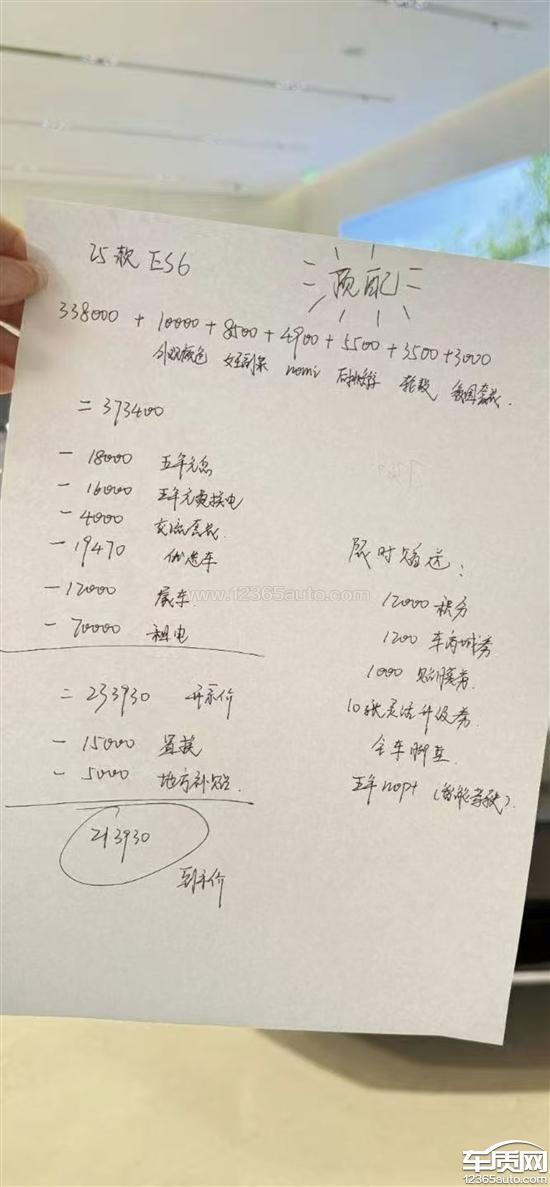 25款 ES6
顶配
338000 + 10000 + 8500 + 4900 + 5500 + 3500 + 3000
外观颜色 女王副驾 nomi 轮毂
= 373400
- 18000 五年免息
- 16000 五年免费换电
- 4000
- 19470 优选车
- 12000 展车
- 70000 租电
= 233930 开票价
- 15000 置换
- 5000 地方补贴
213930
到手价
限时赠送:
12000 积分
1200 车商城券
1000
10张灵活升级券
全车脚垫
五年nop+ (智能驾驶)
www.12365auto.com
车质网
12365auto.com